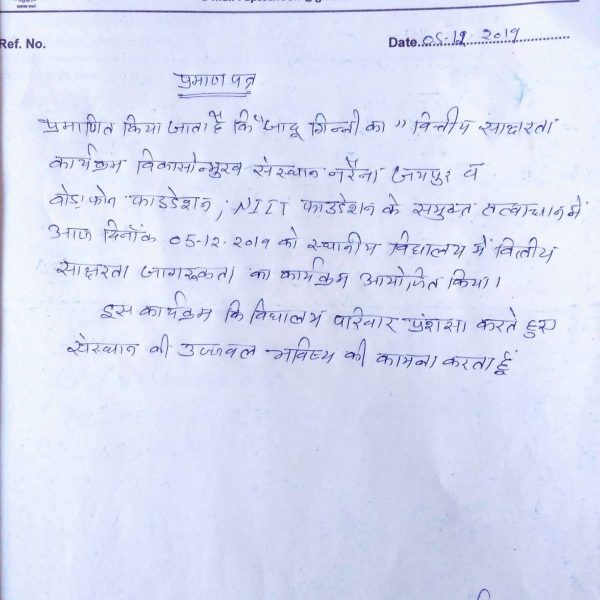 Ref. No.
Date. 05-12-2019
प्रमाण पत्र
प्रमाणित किया जाता है कि "जादू गिन्नी का" वित्तीय साक्षरता
कार्यक्रम विकासोन्मुख संस्थान नरैना जयपुर व
वोडाफोन फाउडेशन, NIIT फाउडेशन के सयुक्त तत्वाधान में
आज दिनाँक 05-12-2019 को स्थानीय विद्यालय में वित्तीय
साक्षरता जागरूकता का कार्यक्रम आयोजित किया।
इस कार्यक्रम कि विद्यालय परिवार प्रंशसा करते हुए
संस्थान की उज्जवल भविष्य की कामना करता हूँ